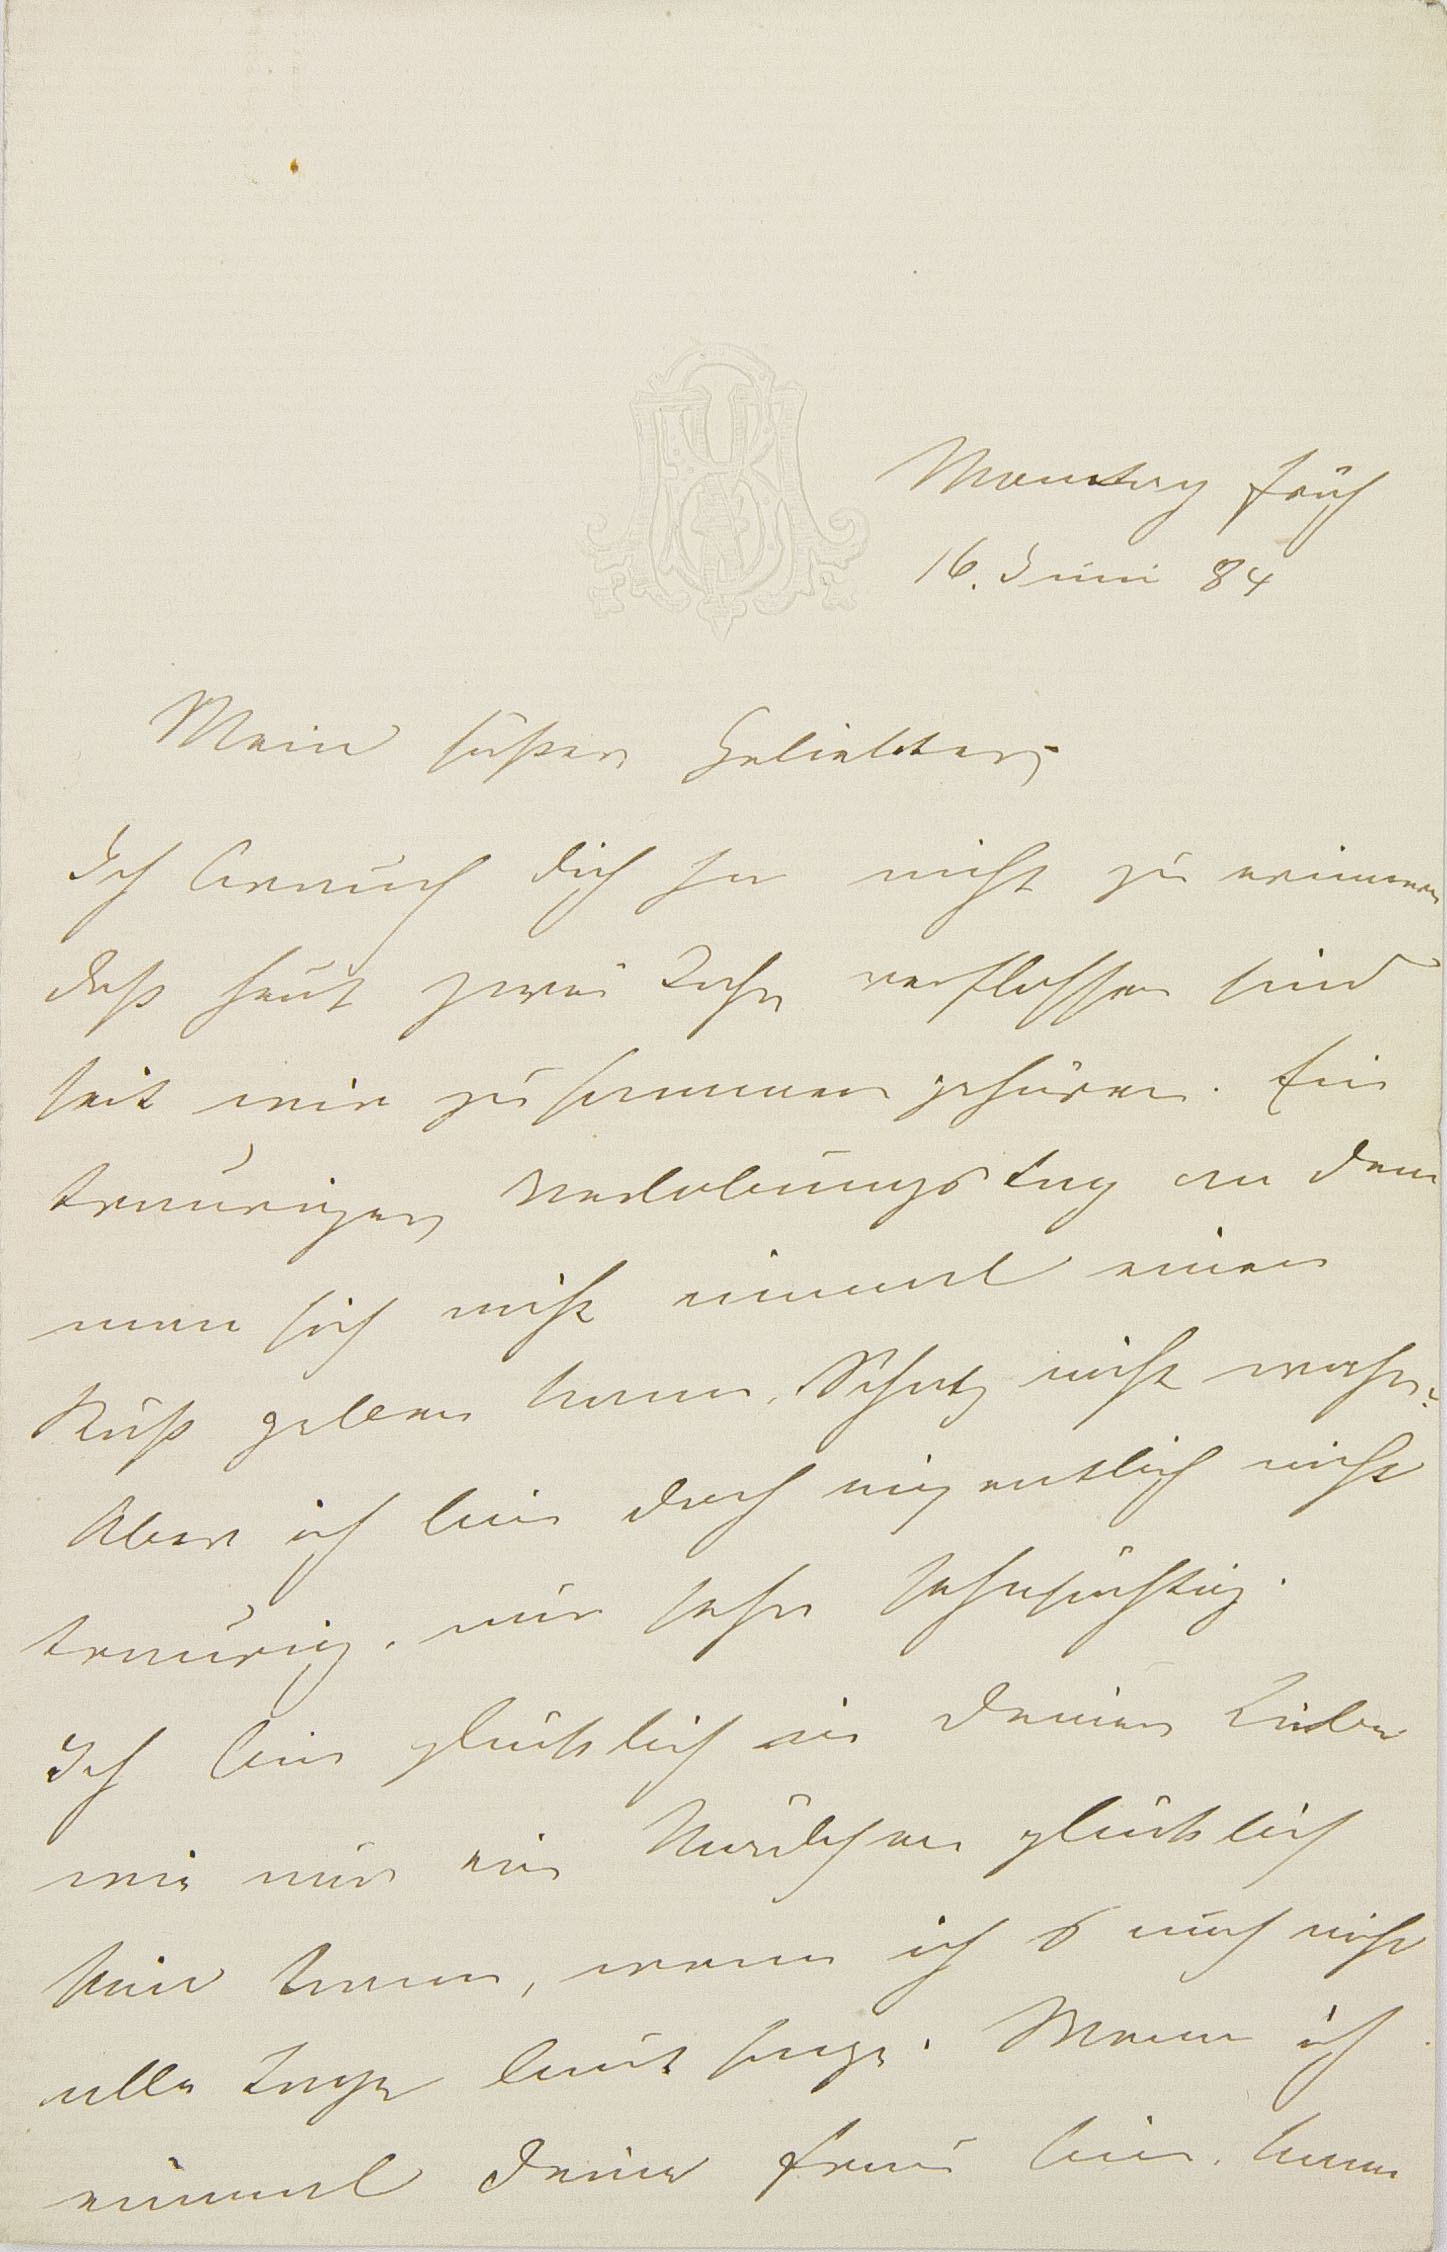 MB
Montag früh
16. Juni 84
Mein süßer Geliebter,
Ich brauch Dich ja nicht zu erinnern
daß heut zwei Jahr verflossen sind
seit wir zusammen gehören. Ein
trauriger Verlobungstag an dem
man sich nicht einmal einen
Kuß geben kann, Schatz nicht wahr?
Aber ich bin doch eigentlich nicht
traurig, nur sehr sehnsüchtig.
Ich bin glücklich in Deiner Liebe
wie nur ein Mädchen glücklich
sein kann, wenn ich's auch nicht
alle Tage laut sage. Wenn ich
einmal Deine Frau bin, kann